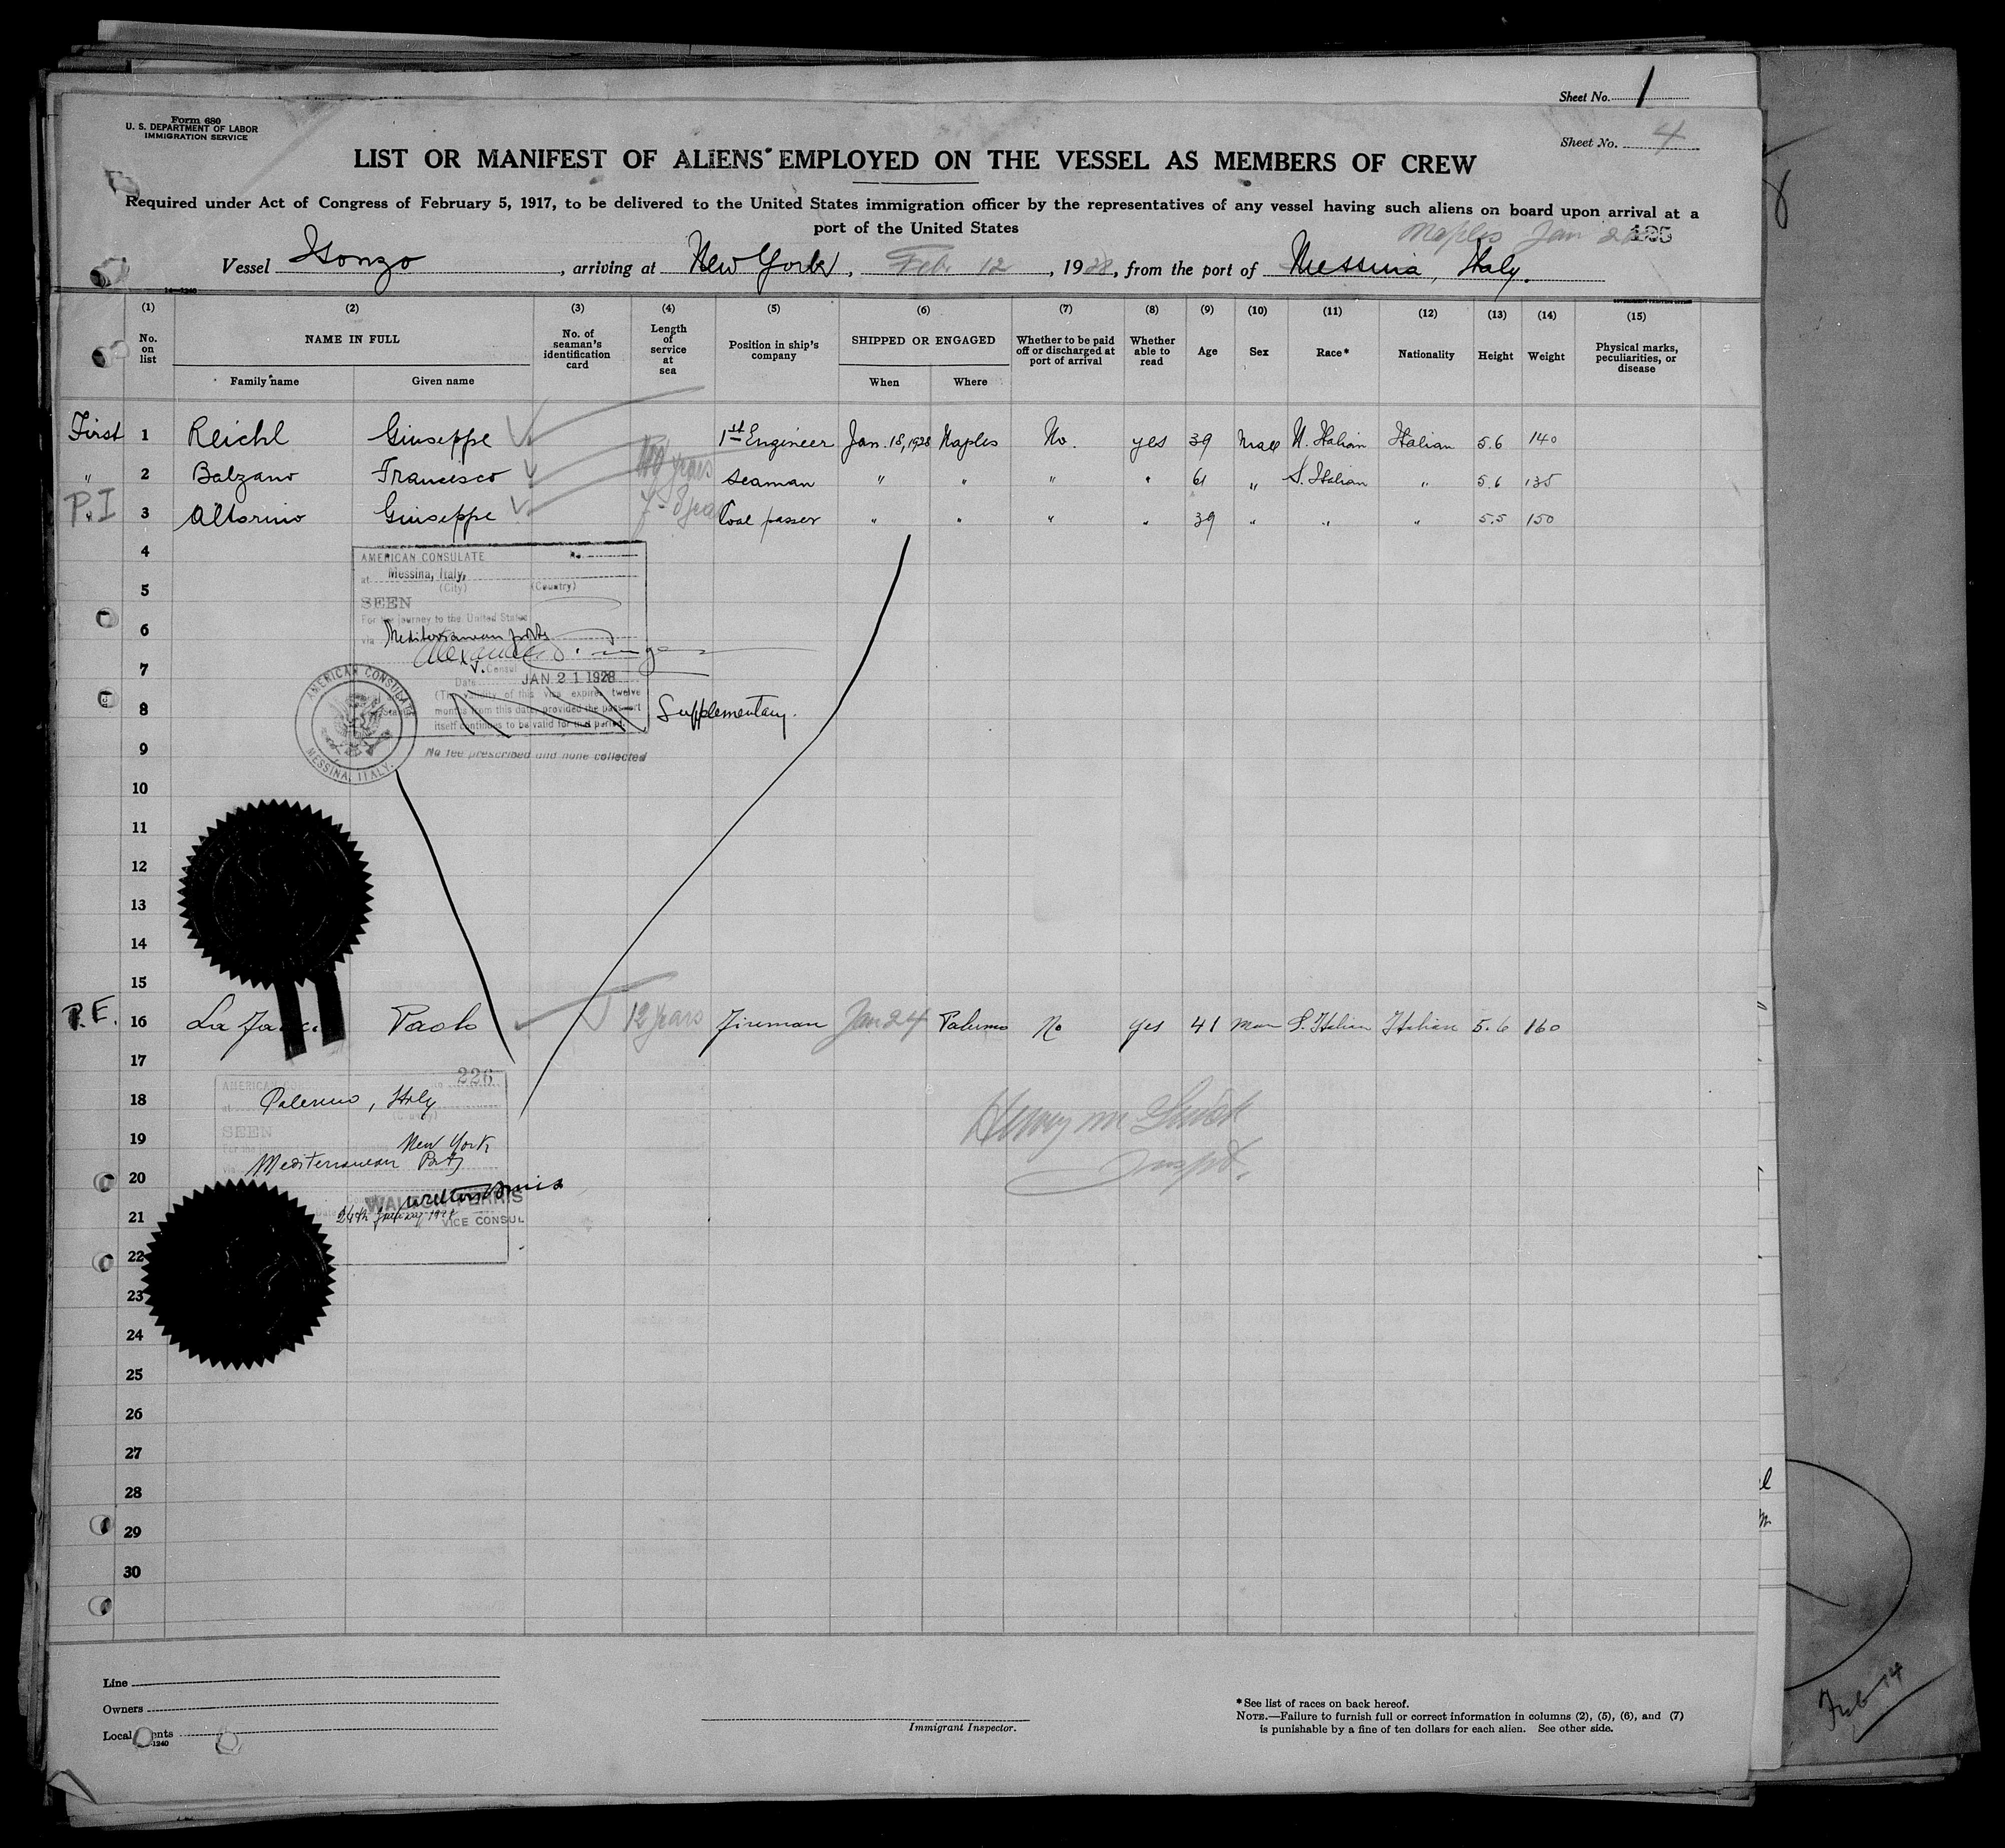 Sheet No. 1
Form 680
U. S. DEPARTMENT OF LABOR
IMMIGRATION SERVICE
Sheet No. 4
LIST OR MANIFEST OF ALIENS EMPLOYED ON THE VESSEL AS MEMBERS OF CREW
Required under Act of Congress of February 5, 1917, to be delivered to the United States immigration officer by the representatives of any vessel having such aliens on board upon arrival at a
port of the United States
Naples Jan 195
Vessel Isonzo, arriving at New York, Feb. 12, 1928, from the port of Messina, Italy.
(1) (2) (3) (4) (5) (6) (7) (8) (9) (10) (11) (12) (13) (14) (15)
No. on list NAME IN FULL No. of seaman's identification card Length of service at sea Position in ship's company SHIPPED OR ENGAGED Whether to be paid off or discharged at port of arrival Whether able to read Age Sex Race* Nationality Height Weight Physical marks, peculiarities, or disease
Family name Given name When Where
First 1 Reichl Giuseppe 1st Engineer Jan. 18, 1928 Naples No. yes 39 Male N. Italian Italian 5.6 140
" 2 Balzano Francisco 40 years Seaman " " " " 61 " S. Italian " 5.6 135
P.I 3 Altorino Giuseppe 7-8 yea Coal passer " " " " 39 " " " 5.5 150
4
AMERICAN CONSULATE No.
at Messina, Italy,
(City) (Country)
5
SEEN
For the journey to the United States
6
via Mediterranean ports
7
V. Consul
Date JAN 21 1928
(The validity of this visa expires twelve
months from this date, provided the passport
itself continues to be valid for that period.
8 Supplementary.
AMERICAN CONSULATE
MESSINA, ITALY.
9
No fee prescribed and none collected
10
11
12
13
14
15
P.E. 16 La Paolo 12 years Fireman Jan 24 Palermo No yes 41 Man S. Italian Italian 5.6 160
17
226
AMERICAN
18
at Palermo, Italy
19
SEEN
New York
Mediterranean Ports
20
WALTON FERRIS
24th January 1928
VICE CONSUL
21
Henry M
Inspt.
22
23
24
25
26
27
28
29
30
Line
Owners
Local ents
1240
Immigrant Inspector.
*See list of races on back hereof.
NOTE.—Failure to furnish full or correct information in columns (2), (5), (6), and (7)
is punishable by a fine of ten dollars for each alien. See other side.
Feb 14